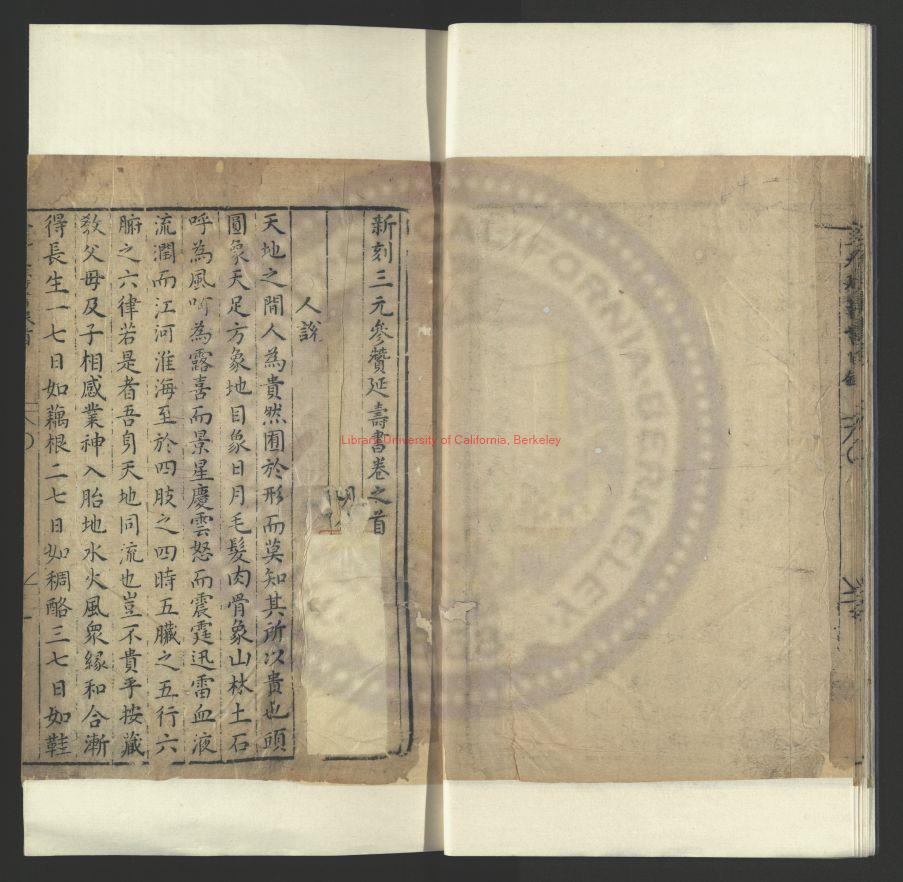 新刻三元參贊延壽書卷之首
人說
天地之間人為貴然囿於形而莫知其所以貴也頭
圓象天足方象地目象日月毛髮肉骨象山林土石
呼為風呵為露喜而景星慶雲怒而震霆迅雷血液
流潤而江河淮海至於四肢之四時五臟之五行六
腑之六律若是者吾身天地同流也豈不貴乎按藏
教父母及子相感業神入胎地水火風衆緣和合漸
得長生一七日如藕根二七日如稠酪三七日如鞋
Library University of California, Berkeley